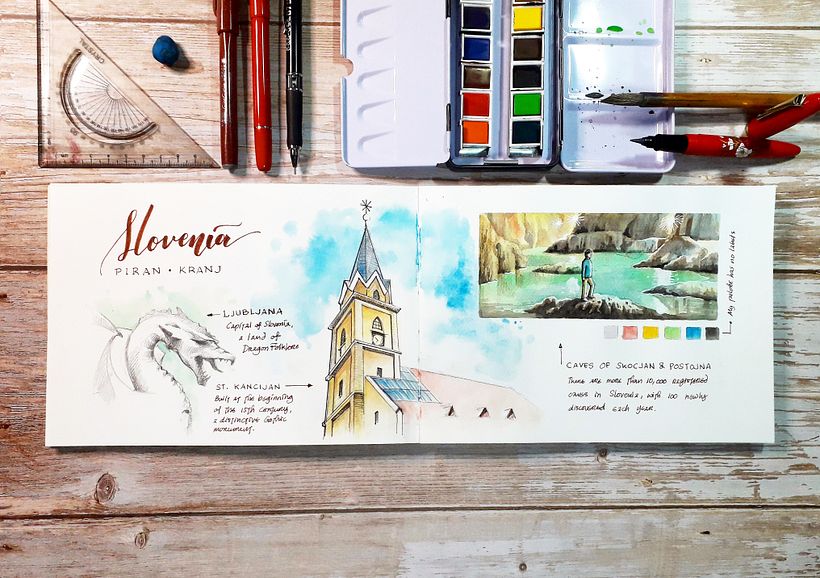 CRYSTAL
Slovenia
PIRAN • KRANJ
LJUBLJANA
Capital of Slovenia,
a land of
Dragon Folklore
ST. KANCIJAN
Built at the beginning
of the 15th century,
a distinctive Gothic
monument.
My palette has no labels
CAVES OF SKOCJAN & POSTOJNA
There are more than 10,000 registered
caves in Slovenia, with 100 newly
discovered each year.